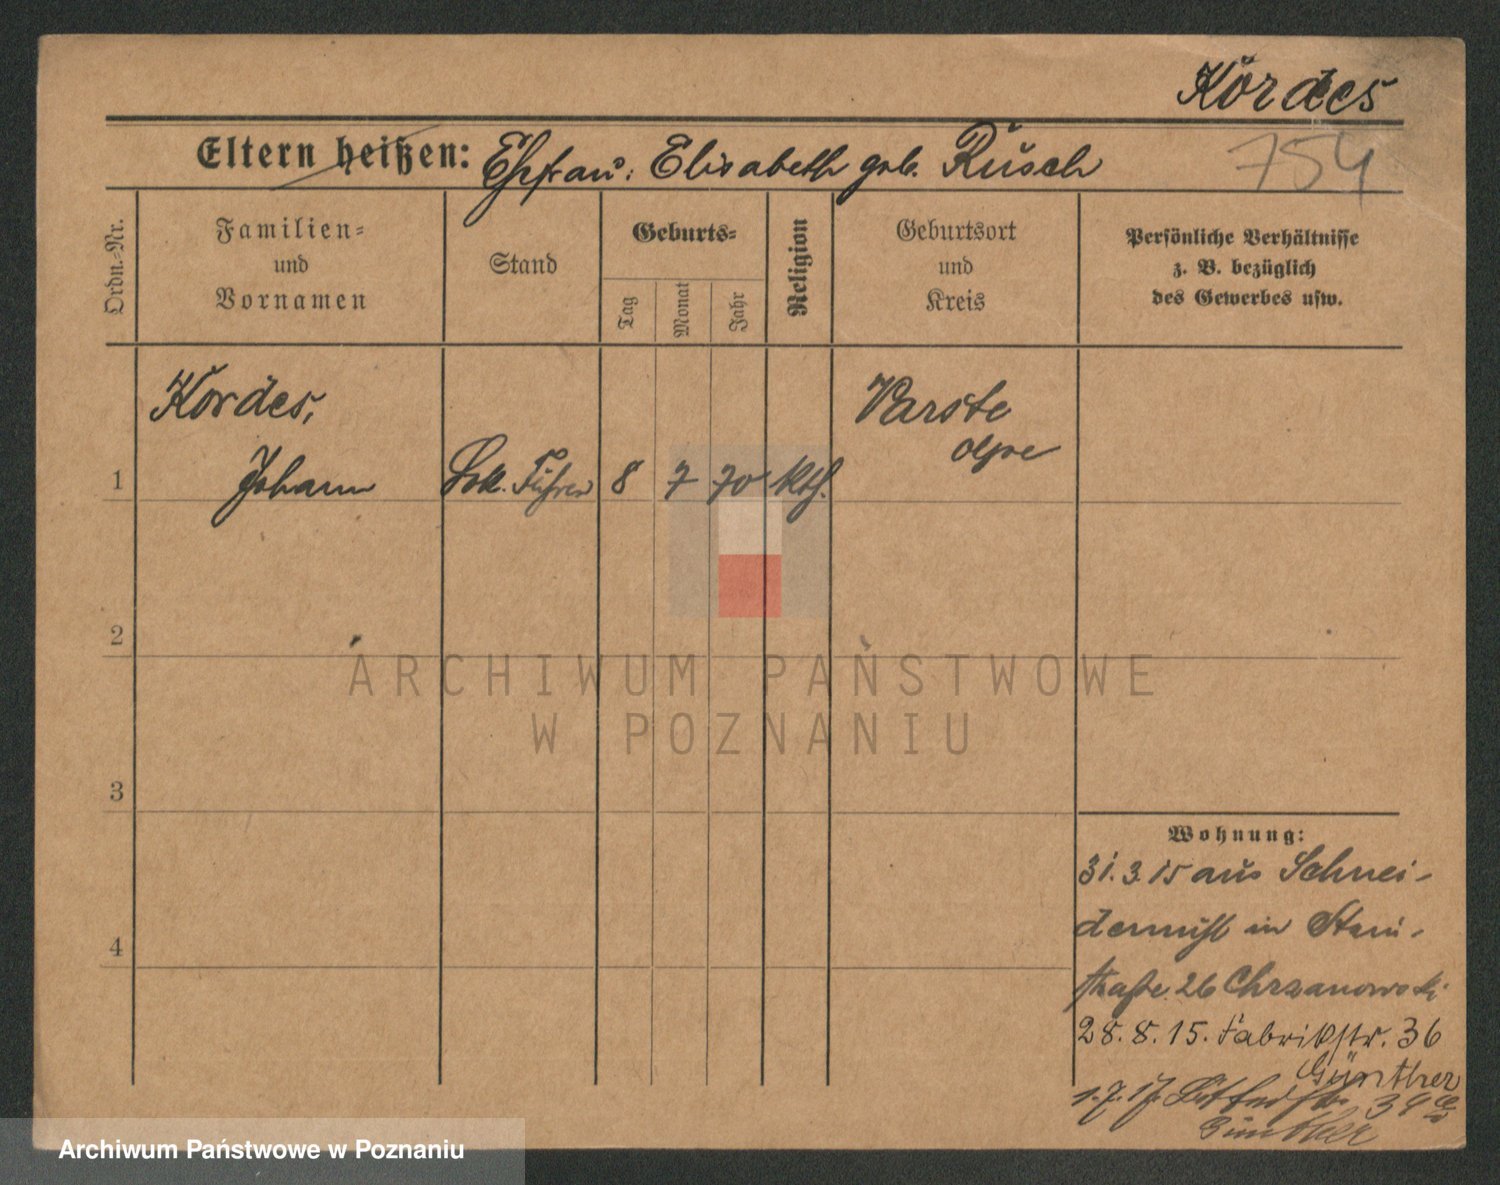 Kördes
Eltern heißen: Ehefrau: Elisabeth geb. Rüsch
754
Ordn.-Nr.
Familien-
und
Vornamen
Stand
Geburts-
Tag
Monat
Jahr
Religion
Geburtsort
und
Kreis
Persönliche Verhältnisse
z. B. bezüglich
des Gewerbes usw.
Kördes,
Varste
Olpe
1
Johann
Lok. Führer
8
7
70
kth.
2
ARCHIWUM PAŃSTWOWE
W POZNANIU
3
4
Wohnung:
31.3.15 aus Schnei-
demühl in
straße 26 Chrzanowski
28.8.15. Fabrikstr. 36
Günther
1.7.17. 39
Günther
Archiwum Państwowe w Poznaniu